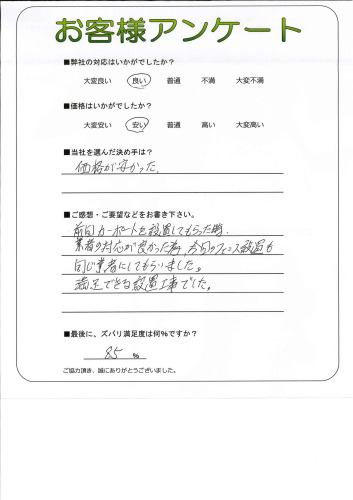 お客様アンケート
■弊社の対応はいかがでしたか？
大変良い 良い 普通 不満 大変不満
■価格はいかがでしたか？
大変安い 安い 普通 高い 大変高い
■当社を選んだ決め手は？
価格が安かった。
■ご感想・ご要望などをお書き下さい。
前回カーポートを設置してもらった時、
業者の対応が良かった為、今回のフェンス設置も
同じ業者にしてもらいました。
満足できる設置工事でした。
■最後に、ズバリ満足度は何％ですか？
85 %
ご協力頂き、誠にありがとうございました。